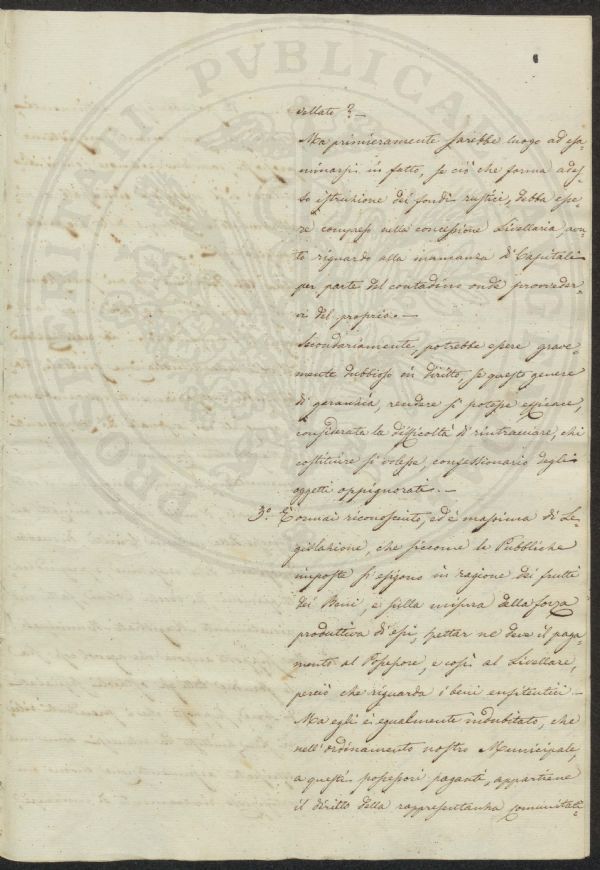 vellate? -
Ma primieramente sarebbe luogo ad esa-
minarsi in fatto, se ciò che forma ades-
so istruzione dei fondi rustici, debba esse-
re compreso nella concessione Livellaria avu-
to riguardo alla mancanza di Capitali
per parte del contadino onde provveder-
vi del proprio. -
Secondariamente, potrebbe essere grave-
mente dubbioso in diritto, se questo genere
di garanzia, rendere si potesse efficace,
considerata la difficoltà di rintracciare, chi
costituire si volesse, confessionario degli
oggetti oppignorati. -
3.o È ormai riconosciuto, ed è massima di Le-
gislazione, che siccome le Pubbliche
imposte si esigono in ragione dei frutti
dei Beni, e sulla misura della forza
produttiva di essi, spettar ne deve il paga-
mento al Possessore, e così al Livellare,
perciò che riguarda i beni enfiteutici -
Ma egli è egualmente indubitato, che
nell'ordinamento nostro Municipale,
a questi possessori paganti, appartiene
il diritto della rappresentanza comunitati-
PROSPERITATI PVBLICAE